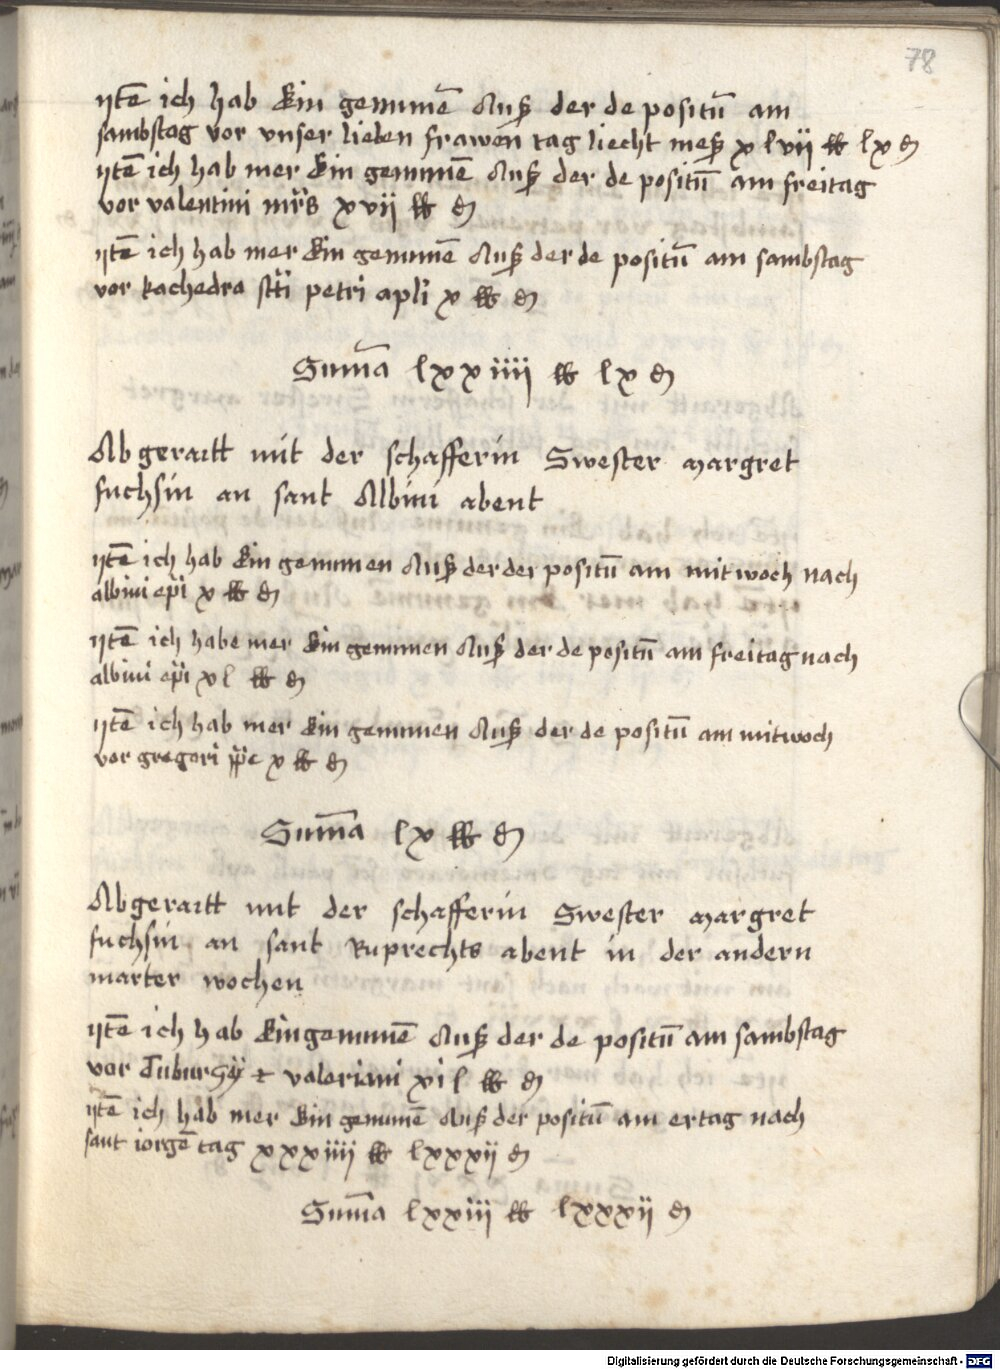 78
ytē ich hab Ein genumē Auß der de positū am
sambstag vor vnser lieben frawen tag liecht meß x lvii ℔ lx ₰
ytē ich hab mer Ein genumē Auß der de positū am freitag
vor valentini mr̄s xvii ℔ ₰
ytē ich hab mer Ein genumē Auß der de positū am sambstag
vor kathedra sti petri apli x ℔ ₰
Sum̄a lxxiiii ℔ lx ₰
Abgeraitt mit der schafferin Swester margret
fuchsin an sant Albini abent
ytē ich hab Ein genumen Auß der der positū am mitwoch nach
albini epi x ℔ ₰
ytē ich habe mer Ein genumen Auß der de positū am freitag nach
albini epi xl ℔ ₰
ytē ich hab mer Ein genumen Auß der de positū am mitwoch
vor gregori ppe x ℔ ₰
Sum̄a lx ℔ ₰
Abgeraitt mit der schafferin Swester margret
fuchsin an sant Ruprechts abent in der andern
marter wochen
ytē ich hab Ein genumē Auß der de positū am sambstag
vor Tiburcy et valeriani xil ℔ ₰
ytē ich hab mer Ein genumē Auß der positū am ertag nach
sant iorgē tag xxxiiii ℔ lxxxii ₰
Sum̄a lxxiii ℔ lxxxii ₰
Digitalisierung gefördert durch die Deutsche Forschungsgemeinschaft - DFG